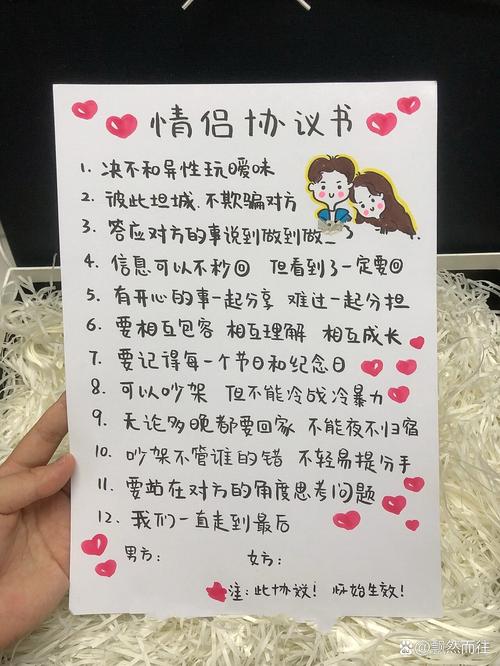 情侣协议书
1. 决不和异性玩暧昧
2. 彼此坦城.不欺骗对方
3. 答应对方的事说到做到做
4. 信息可以不秒回 但看到了一定要回
5. 有开心的事一起分享 难过一起分担
6. 要相互包容 相互理解 相互成长
7. 要记得每一个节日和纪念日
8. 可以吵架 但不能冷战冷暴力
9. 无论多晚都要回家 不能夜不归宿
10. 吵架不管谁的错 不轻易提分手
11. 要站在对方的角度思考问题
12. 我们一直走到最后
男方: 女方:
注: 此协议! 怀始生效!
百家号/飘然而往